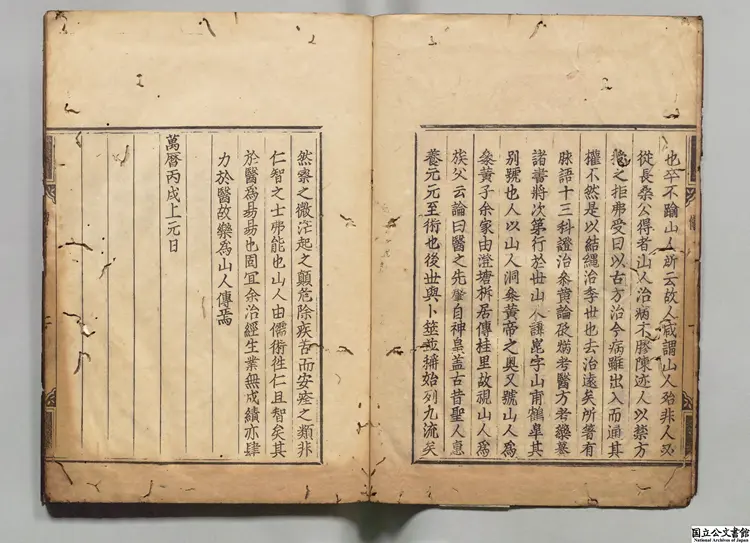 也卒不踰山人所云故人咸謂山人殆非人必
從長桑公得者山人治病不膠陳迹人以禁方
之拒弗受曰以古方治今病雖出入而通其
權不然是以結繩治季世也去治遠矣所著有
脉語十三科證治參黃論砭焫考醫方考藥纂
諸書將次第行於世山人諱崑字山甫鶴皋其
別號也人以山人洞參黃帝之奧又號山人爲
參黃子余家由澄塘柝居傳桂里故視山人爲
族父云論曰醫之先肇自神皇蓋古昔聖人惠
養元元至術也後世與卜筮並播始列九流矣
然察之微茫起之顛危除疾苦而安痊之類非
仁智之士弗能也山人由儒術徃仁且智矣其
於醫爲易易也固宜余治經生業無成績亦肆
力於醫故樂爲山人傳焉
萬曆丙戌上元日
国立公文書館
National Archives of Japan